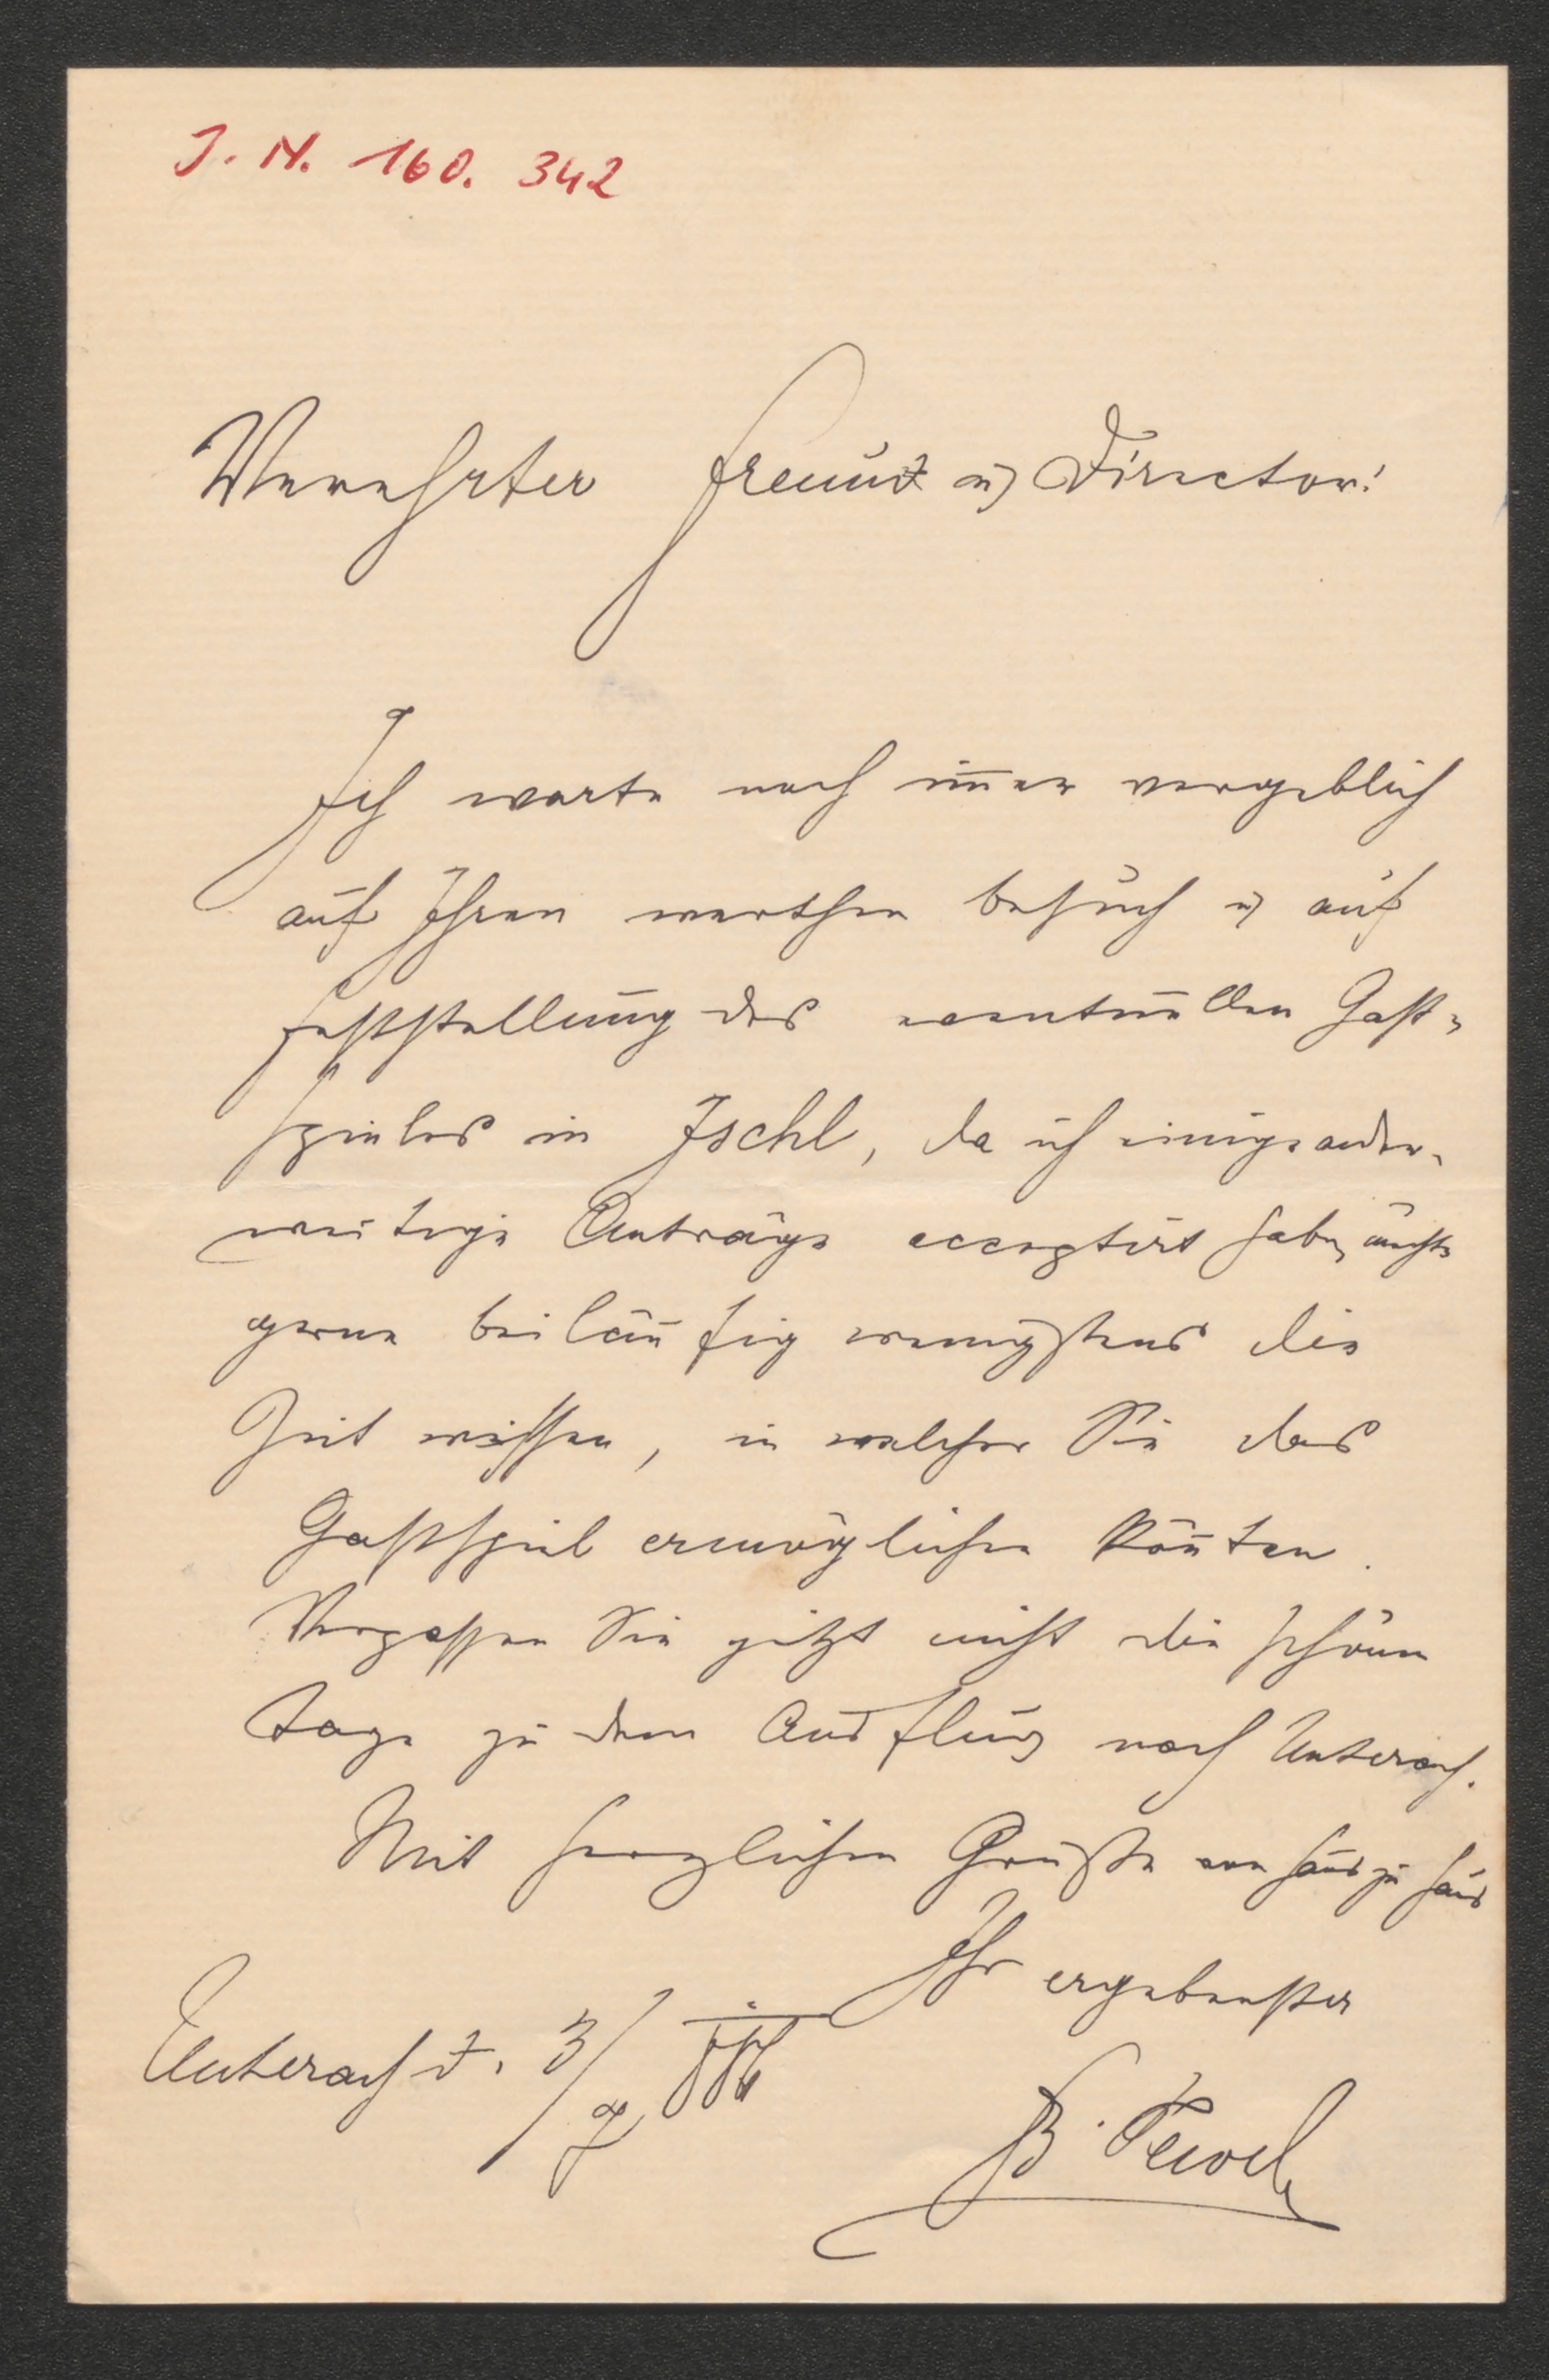 J. N. 160. 342
Verehrter Freund u Director!
Ich warte noch im̄er vergeblich
auf Ihren werthen Besuch u auf
Feststellung des eventuellen Gast-
spieles in Ischl, da ich einige ander-
weitige Anträge acceptirt habe, möchte
gerne beiläufig wenigstens die
Zeit wissen, in welcher Sie das
Gastspiel ermöglichen kön̄ten.
Vergessen Sie jetzt nicht die schönen
Tage zu dem Ausflug nach Unterach.
Mit herzlichen Grüßen von Haus zu Haus
Ihr ergebenster
Unterach d. 3/7
B.